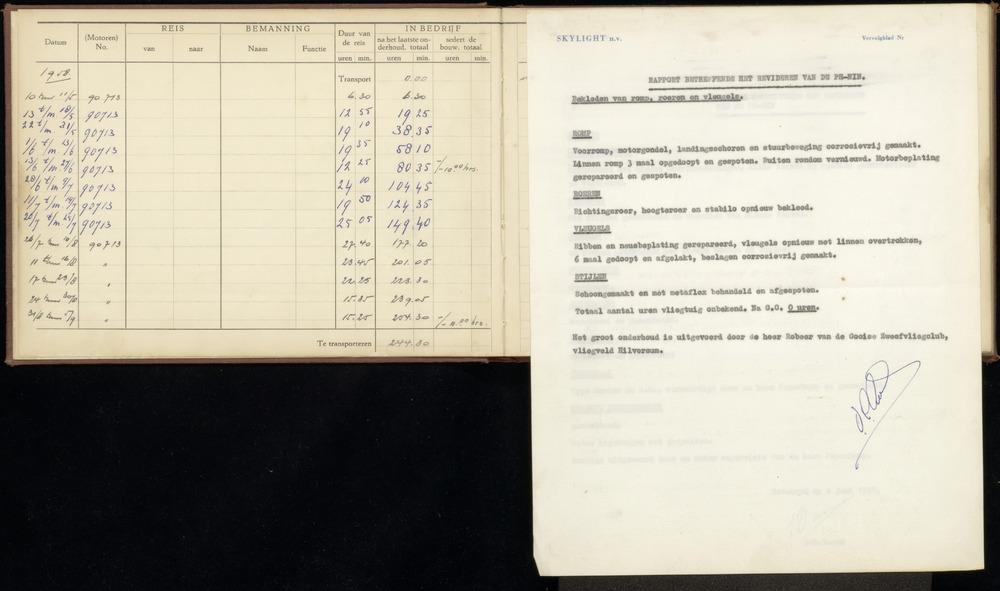 REIS BEMANNING Duur van de reis IN BEDRIJF
Datum (Motoren) No. van naar Naam Functie na het laatste onderhoud. totaal sedert de bouw. totaal
uren min. uren min. uren min.
1958 Transport 0.00
90713 6.30 6.30
13 t/m 18/5 90713 12 55 19 25
22 t/m 31/5 90713 19 10 38.35
1/6 t/m 13/6 90713 19 35 58 10
13/6 t/m 27/6 90713 12 25 80 35 -/- 10 00 hrs.
28/6 t/m 9/7 90713 24 00 104 45
11/7 t/m 19/7 90713 19 50 124 35
20/7 t/m 25/7 90713 25 05 149.40
26/7 10/8 90713 27.40 177.20
11 16/8 " 23.45 201.05
17 23/8 " 22.25 223.30
24 30/8 " 15.35 239.05
31/8 5/9 " 15.25 254.30 -/- 11.00 hrs.
Te transporteren 244.30
SKYLIGHT n.v. Vervolgblad Nr
RAPPORT BETREFFENDE HET REVIDEREN VAN DE PH-NIN.
Bekleden van romp, roeren en vleugels.
ROMP
Voorromp, motorgondel, landingsschoren en stuurbeweging corrosievrij gemaakt.
Linnen romp 3 maal opgedoopt en gespoten. Ruiten rondom vernieuwd. Motorbeplating
gerepareerd en gespoten.
ROEREN
Richtingsroer, hoogteroer en stabilo opnieuw bekleed.
VLEUGELS
Ribben en neusbeplating gerepareerd, vleugels opnieuw met linnen overtrokken,
6 maal gedoopt en afgelakt, beslagen corrosievrij gemaakt.
STIJLEN
Schoongemaakt en met metaflex behandeld en afgespoten.
Totaal aantal uren vliegtuig onbekend. Na G.O. 0 uren.
Het groot onderhoud is uitgevoerd door de heer Robeer van de Gooise Zweefvliegclub,
vliegveld Hilversum.